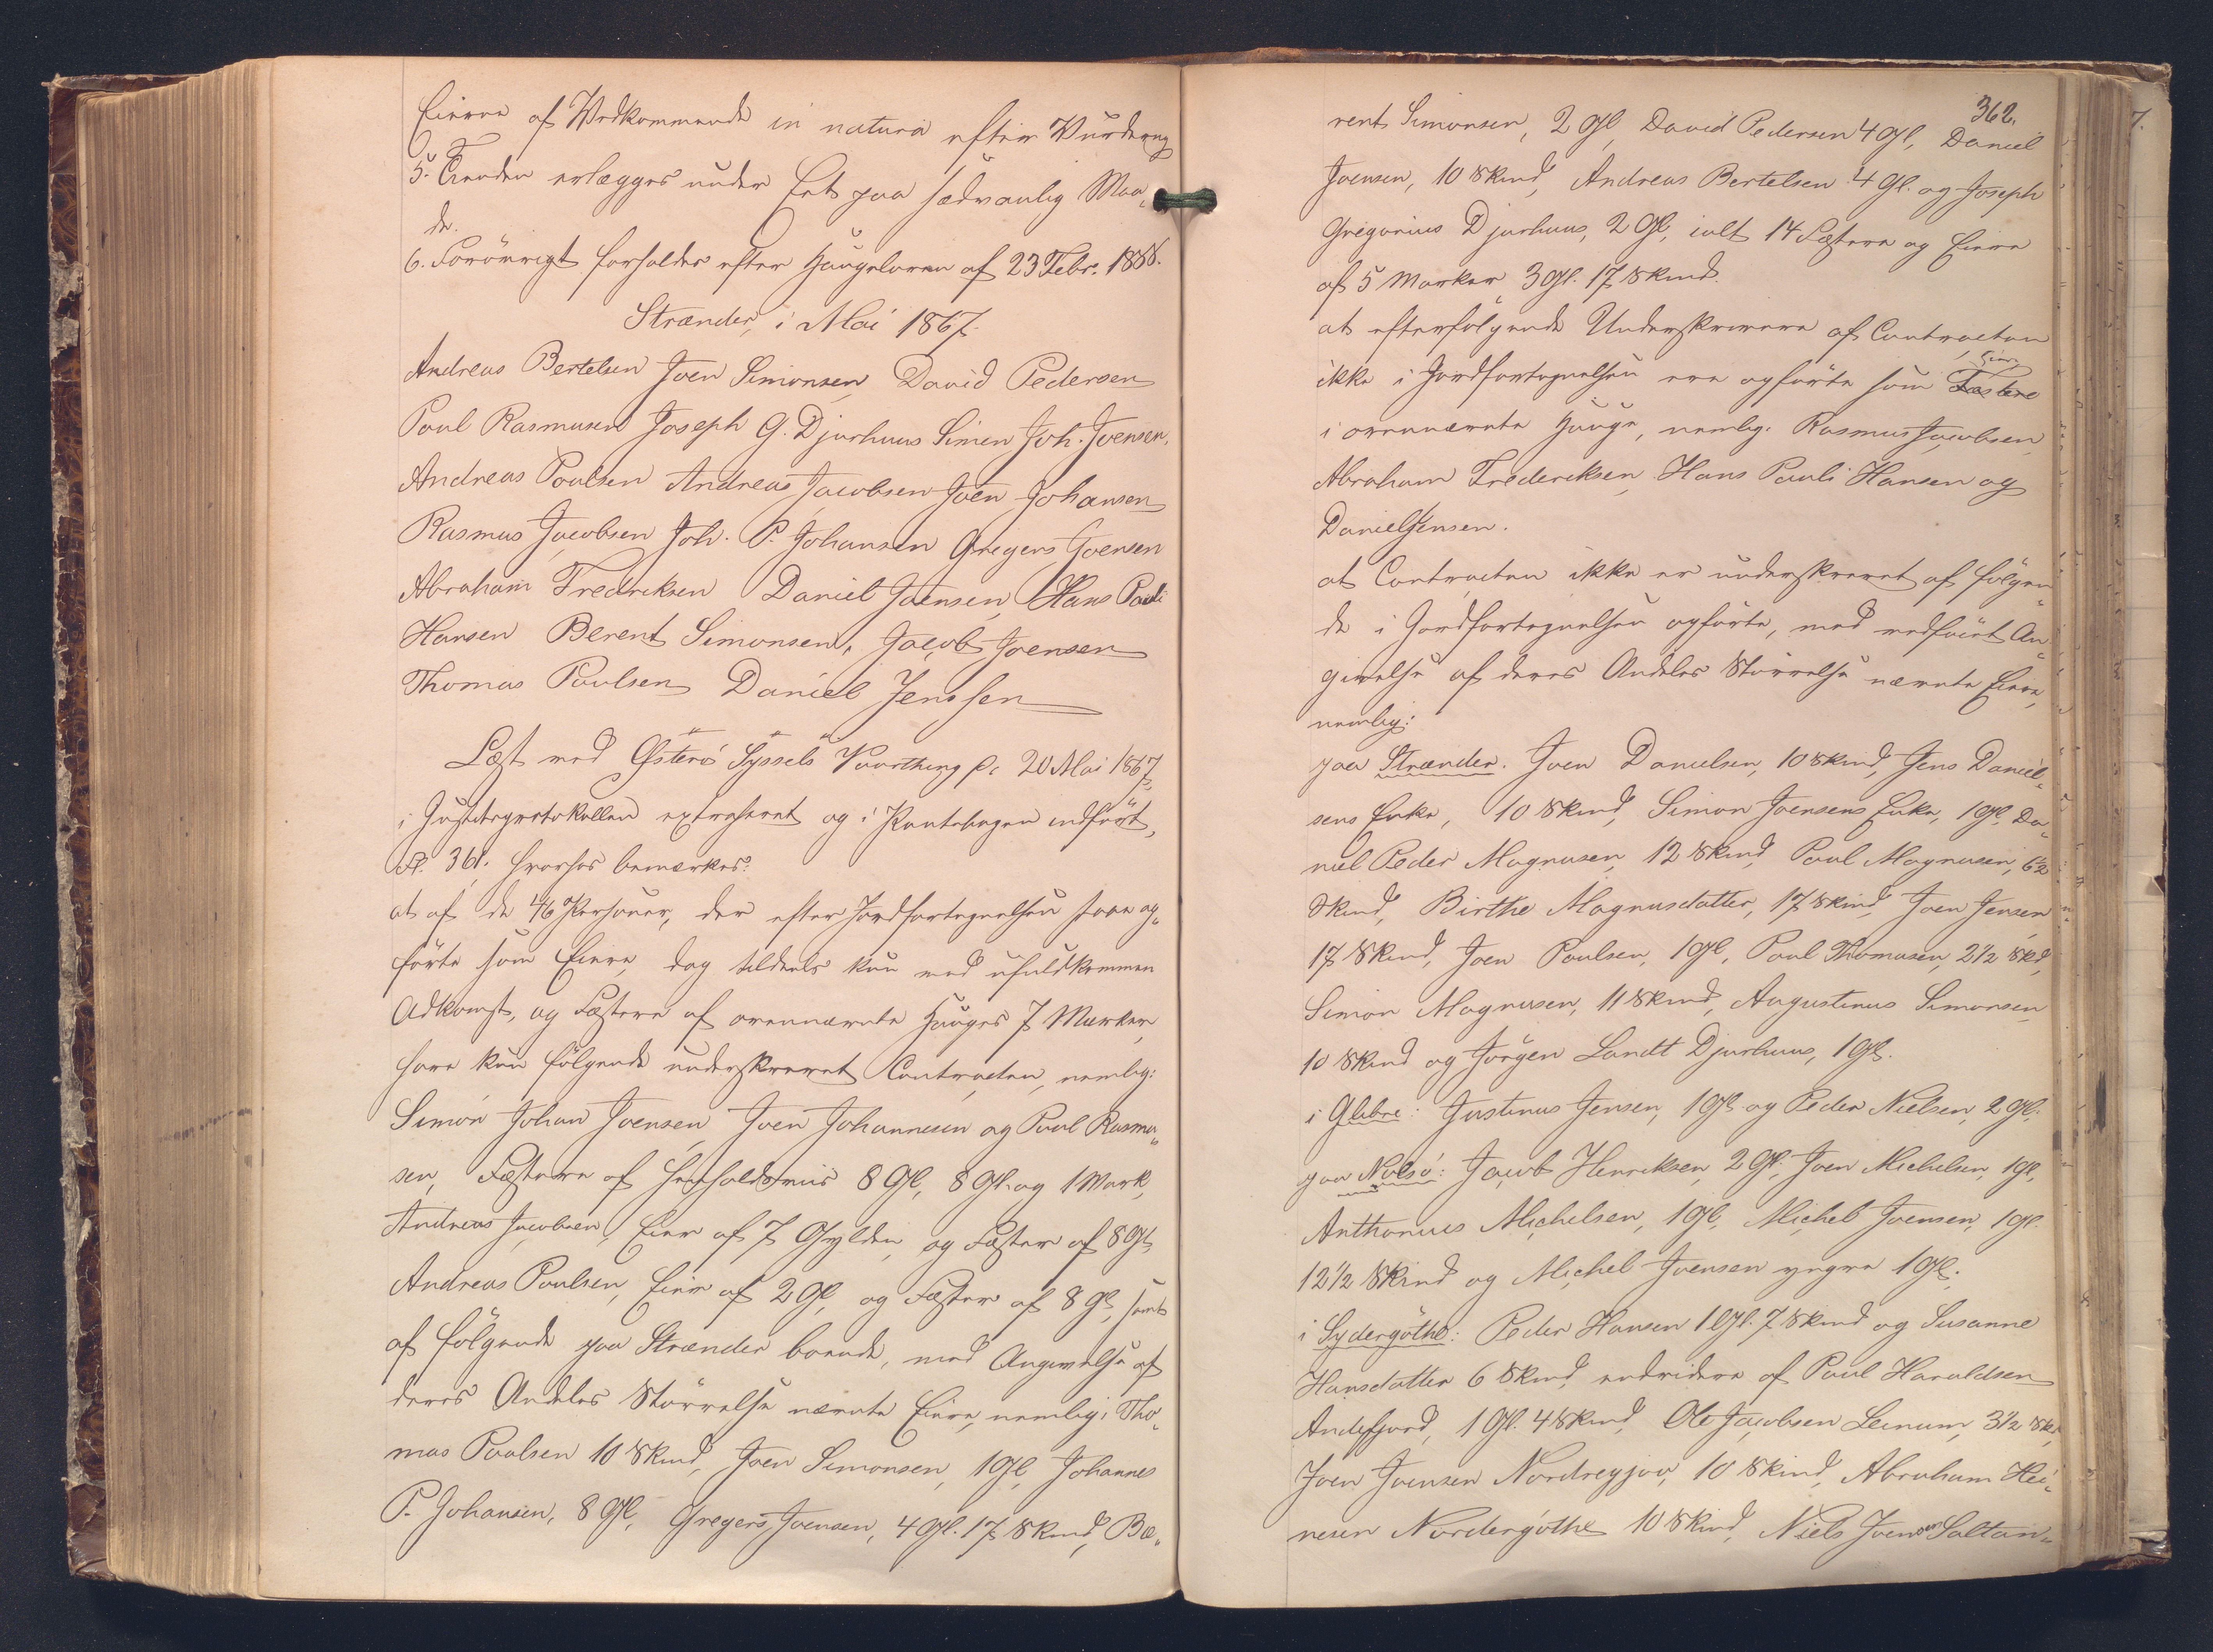 Eieren af Vedkommende in natura efter Vurdering
5. Tienden erlægges under Eet paa sædvanlig Maa-
de.
6. Forövrigt forholdes efter Haugeloven af 23 Febr. 1866.
Strænder, i Mai 1867.
Andreas Bertelsen Joen Simonsen, David Pedersen
Poul Rasmusen Joseph G. Djurhuus Simen Joh. Joensen,
Andreas Poulsen Andreas Jacobsen Joen Johansen
Rasmus Jacobsen Joh. P. Johansen Gregers Joensen
Abraham Fredriksen Daniel Joensen, Hans Pauli
Hansen Berent Simonsen, Jacob Joensen
Thomas Poulsen Daniel Jenssen
Læst ved Österö Syssels Vaarthing p. 20 Mai 1867,
i Justitsprotokollen extraheret og i Pantebogen indfört,
pl. 361. hvorhos bemærkes:
at af de 46 Personer, der efter Jordfortegnelsen staae op-
förte som Eiere, dog tildeels kun med ufuldkommen
Adkomst, og Fæstere af ovennævnte Hauges 7 Marker,
have kun fölgende underskrevet Contracten, nemlig:
Simon Johan Joensen, Joen Johannesen og Poul Rasmu-
sen, Fæstere af henholdsviis 8 Gl, 8 Gl. og 1 Mark,
Andreas Jacobsen, Eier af 7 Gylden og Fæster af 8 Gl,
Andreas Poulsen, Eier af 2 Gl, og Fæster af 8 Gl, samt
af fölgende paa Strænder boende, med Angivelse af
deres Andeles Störrelse nævnte Eiere, nemlig: Tho-
mas Poulsen 10 Skind, Joen Simonsen, 1 Gl, Johannes
P. Johansen, 8 Gl, Gregers Joensen, 4 Gl. 17 Skind, Be-
362.
rent Simonsen, 2 Gl, David Pedersen 4 Gl, Daniel
Joensen, 10 Skind, Andreas Bertelsen 4 Gl. og Joseph
Gregorius Djurhuus, 2 Gl, ialt 14 Fæstere og Eiere
af 5 Marker 3 Gl. 17 Skind.
at efterfölgende Underskrivere af Contracten
Eiere
ikke i Jordfortegnelsen ere opförte som Fæstere
i ovennævnte Hauge, nemlig: Rasmus Jacobsen,
Abraham Frederiksen, Hans Pauli Hansen og
Daniel Jensen.
at Contracten ikke er underskrevet af fölgen-
de i Jordfortegnelsen opförte, med vedföiet An-
givelse af deres Andeles Störrelse nævnte Eiere,
nemlig:
paa Strænder. Joen Danielsen, 10 Skind, Jens Daniel-
sens Enke, 10 Skind, Simon Joensens Enke, 1 Gl, Da-
niel Peder Magnusen, 12 Skind, Poul Magnusen, 6½
Skind, Birthe Magnusdatter, 17 Skind, Joen Jensen,
17 Skind, Joen Poulsen, 1 Gl, Poul Thomasen, 2½ Skd,
Simon Magnusen, 11 Skind, Augustinus Simonsen,
10 Skind og Jörgen Landt Djurhuus, 1 Gl.
i Glibre: Justinus Jensen, 1 Gl. og Peder Nielsen, 2 Gl.
paa Nolsö: Jacob Henriksen, 2 Gl. Joen Michelsen, 1 Gl,
Anthonius Michelsen, 1 Gl, Michel Joensen, 1 Gl.
12½ Skind og Michel Joensen yngre 1 Gl.
i Sydergöthe: Peder Hansen 1 Gl. 7 Skind og Susanne
Hansdatter 6 Skind, endvidere af Poul Haraldsen
Andefjord, 1 Gl. 4 Skind, Ole Jacobsen Leinum, 3½ Skd,
Joen Joensen Nordreygjov, 10 Skind, Abraham Hei-
nesen Nordergöthe 10 Skind, Niels Joensen Saltan-